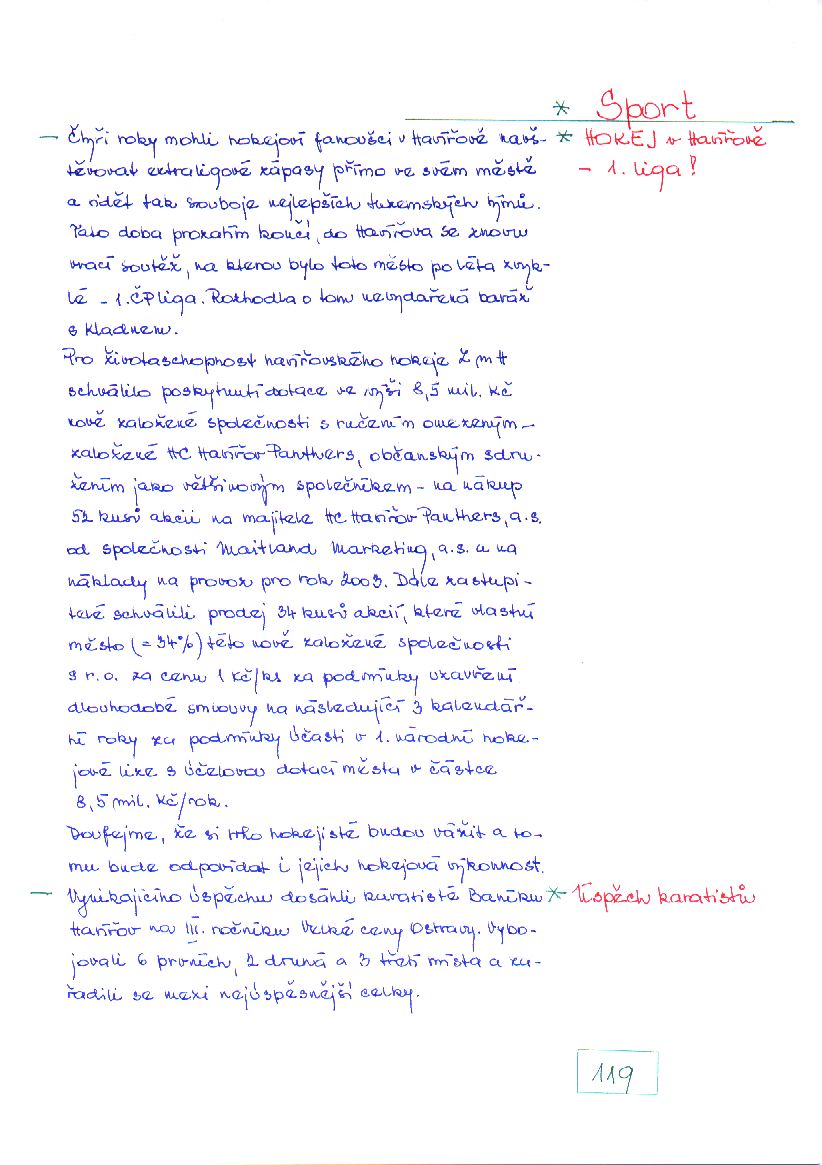 * Sport
— Čtyři roky mohli hokejoví fanoušci v Havířově navš-
* HOKEJ v Havířově
těvovat extraligové zápasy přímo ve svém městě
– 1. liga!
a vidět tak souboje nejlepších tuzemských týmů.
Tato doba prozatím končí, do Havířova se znovu
vrací soutěž, na kterou bylo toto město po léta zvyk-
lé – 1. ČP liga. Rozhodla o tom nevydařená baráž
s Kladnem.
Pro životaschopnost havířovského hokeje ZMH
schválilo poskytnutí dotace ve výši 8,5 mil. Kč
nově založené společnosti s ručením omezeným –
založené HC Havířov Panthers, občanským sdru-
žením jako většinovým společníkem – na nákup
52 kusů akcií na majitele HC Havířov Panthers, a.s.
od společnosti Maitland Marketing, a.s. a na
náklady na provoz pro rok 2003. Dále zastupi-
telé schválili prodej 34 kusů akcií, které vlastní
město (= 34%) této nově založené společnosti
s r.o. za cenu 1 Kč/ks za podmínky uzavření
dlouhodobé smlouvy na následující 3 kalendář-
ní roky za podmínky účasti v 1. národní hoke-
jové lize s účelovou dotací města v částce
8,5 mil. Kč/rok.
Doufejme, že si toho hokejisté budou vážit a to-
mu bude odpovídat i jejich hokejová výkonnost.
— Vynikajícího úspěchu dosáhli karatisté Baníku
* Úspěch karatistů
Havířov na III. ročníku Velké ceny Ostravy. Vybo-
jovali 6 prvních, 2 druhá a 3 třetí místa a za-
řadili se mezi nejúspěsnější celky.
119